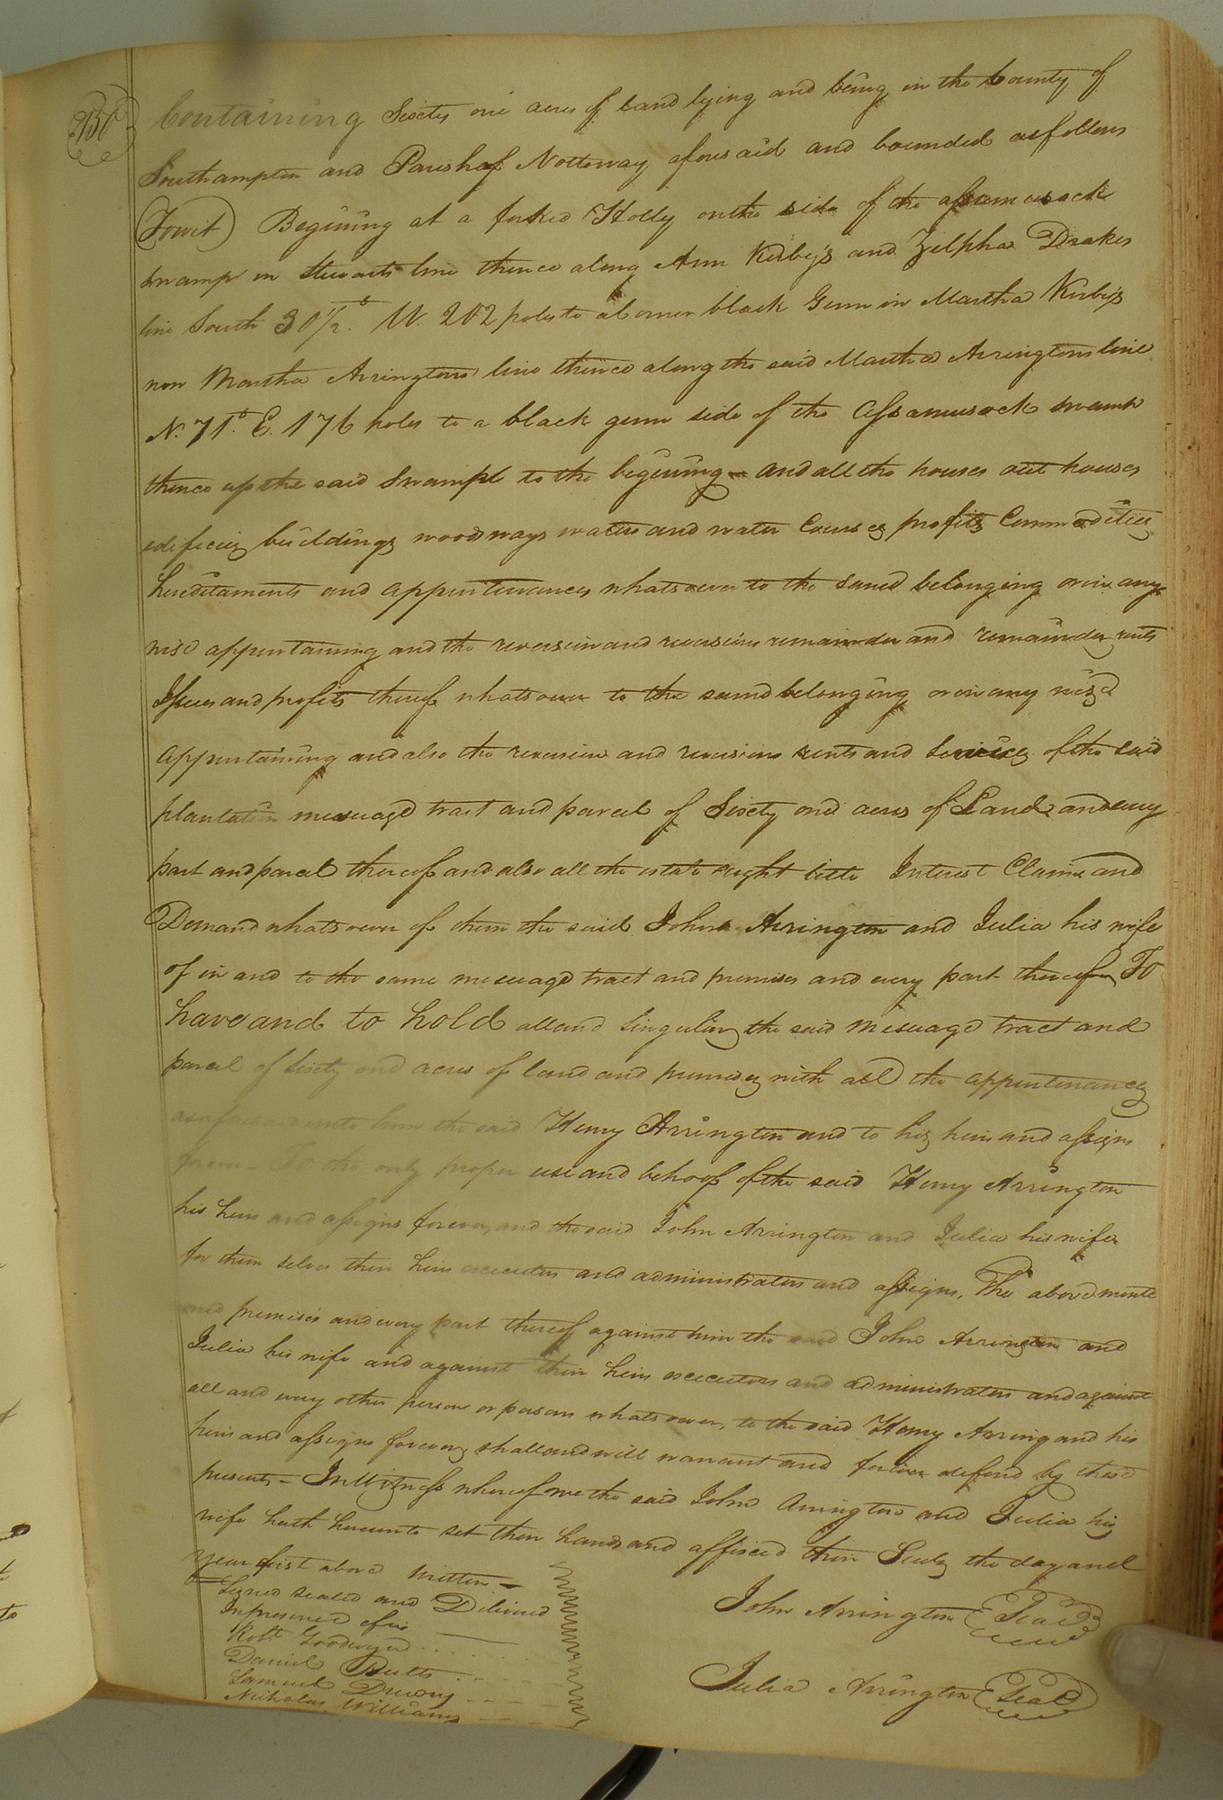 Containing Sixty one acres of land lying and being in the County of
Southampton and Parish of Nottoway aforesaid and bounded as follows
(Towit) Begining at a forked Holly on the side of the assamusock
swamp in Stewarts line thence along Ann Kirby's and Zilpha Drakes
line South 30½° W. 202 poles to a Corner black Gum in Martha Kirby's
now Martha Arringtons line thence along the said Martha Arringtons line
N. 71° E. 176 poles to a black gum side of the Assamusock swamp
thence up the said Swamp to the begining and all the houses out houses
edificies buildings woods ways waters and water Courses profits Commodities
hereditaments and appurtenances whatsoever to the same belonging or in any
wise appertaining and the reversion and reversions remainder and remainders rents
Issues and profits thereof whatsoever to the same belonging or in any wise
appertaining and also the reversion and reversions rents and Services of the said
plantation mesuage tract and parcel of Sixty one acres of Land and every
part and parcel thereof and also all the estate right title Interest Claim and
Demand whatsoever of them the said John Arrington and Julia his wife
of in and to the same mesuage tract and premises and every part thereof To
have and to hold all and Singular the said mesuage tract and
parcel of Sixty one acres of land and premises with all the appurtenances
as aforesaid unto him the said Henry Arrington and to his heirs and assigns
forever to the only proper use and behoof of the said Henry Arrington
his heirs and assigns forever, and the said John Arrington and Julia his wife
for them selves their heirs executors and administrators and assigns, The above menti
oned premises and every part thereof against him the said John Arrington and
Julia his wife and against their heirs executors and administrators and against
all and every other person or persons whatsoever, to the said Henry Arring and his
heirs and assigns forever shall and will warrant and forever defend by these
presents - In Witness whereof we the said John Arrington and Julia his
wife hath hereunto set their hands and affixed their Seals the day and
year first above written -
Signed sealed and Delivered
In presence of us
Robt. Goodwyn
Daniel Butts
Samuel Drewry
Nicholas Williams
John Arrington (Seal)
Julia Arrington (Seal)